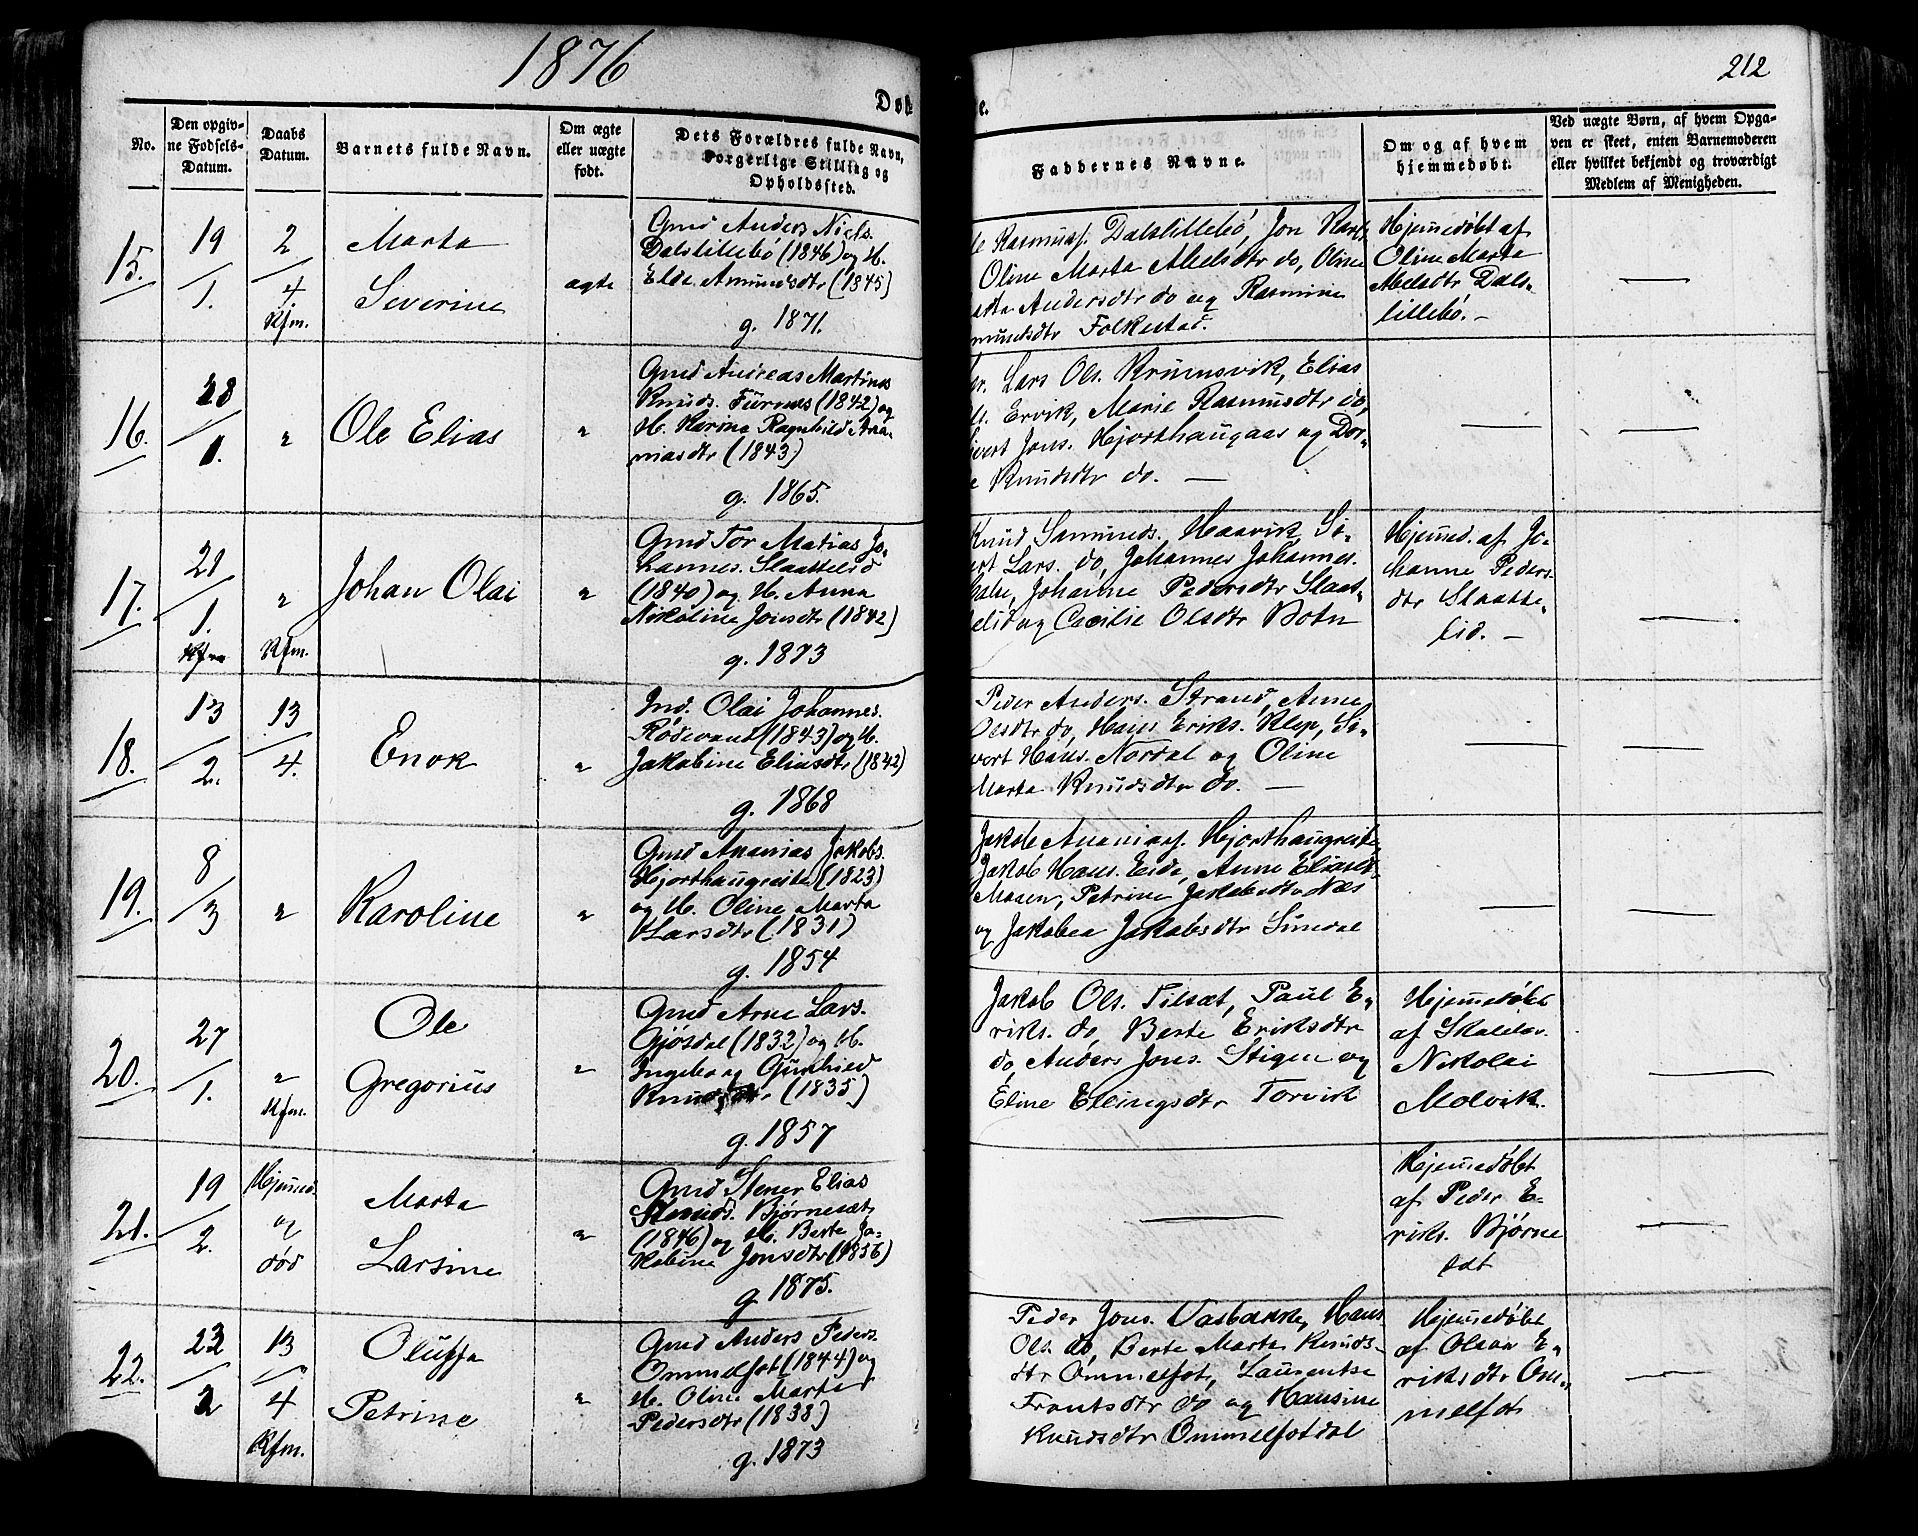 1876
212
Døb
e.
No.
Den opgiv-
ne Fødsels-
Datum.
Daabs
Datum.
Barnets fulde Navn.
Om ægte
eller uægte
født.
Dets Forældres fulde Navn,
borgerlige Stilling og
Opholdssted.
Faddernes Navne.
Om og af hvem
hjemmedøbt.
Ved uægte Børn, af hvem Opga-
ven er skeet, enten Barnemoderen
eller hvilket bekjendt og troværdigt
Medlem af Menigheden.
15.
19/1.
2/4.
Kfm.
Marta
Severine
ægte
Gmd Anders Niels.
Dalslillebø (1846) og H.
Elde Amundsdtr (1845)
g. 1871.
le Rasmuss. Dalslillebø, Jon
Oline Marta Abelsdtr do, Oline
Andersdtr do og Rasmine
mundsdtr Folkestad.
Hjemmedøbt af
Oline Marta
Abelsdtr Dals-
lillebø. -
16.
28/1.
"
Ole Elias
"
Gmd Andreas Martinus
Knuds. Furnes (1842) og
H. Karine Ragnhild Ana-
niasdtr (1843)
g. 1865.
Lars Ols. Krumsvik, Elias
Ervik, Marie Rasmusdtr do,
ivert Jons. Hjorthaugaas og Dor-
e Knudsdtr do. —
17.
21/1.
Kfm
"
Kfm.
Johan Olai
"
Gmd Tor Matias Jo-
hannes. Slaattelid
(1840) og H. Anna
Nikoline Jonsdtr (1842)
g. 1873
Knud Samunds. Haavik, Si-
ert Lars. do, Johannes Johannes.
Johanne Pedersdtr Slaat-
elid og Cecilie Olsdtr Botn
Hjemmd. af Jo-
hanne Peders-
dtr Slaatte-
lid. -
18.
13/2.
13/4.
Enok
"
Ind. Olai Johannes.
Rødevand (1843) og H.
Jakobine Eliasdtr (1842)
g. 1868
Peder Anders. Strand, Anne
Olsdtr do, Hans Eriks. Klep, Si-
vert Hans. Nordal og Oline
Marta Knudsdtr do. —
19.
8/3
"
Karoline
"
Gmd Ananias Jakobs.
Hjorthaugreite (1823)
og H. Oline Marta
Larsdtr (1831)
g. 1854
Jakob Ananiass. Hjorthaugreite,
Jakob Hans. Eide, Anne Eliasdt.
Moen, Petrine Jakobsdtr Næs
og Jakobea Jakobsdtr Sundal
20.
27/1.
"
Kfm.
Ole
Gregorius
"
Gmd Arne Lars.
Gjøsdal (1832) og H.
Ingeborg Gunhild
Knudsdtr (1835)
g. 1857
Jakob Ols. Tilset, Paul E-
riks. do, Berte Eriksdtr
do, Anders Jons. Stigen og
Eline Ellingsdtr Torvik
Hjemmedøbt
af Skolelær.
Nikolai
Molvik.
21.
19/2.
Hjemmd.
og
død
Marta
Larsine
"
Gmd Stener Elias
Knuds. Bjørneset
(1846) og H. Berte Ja-
kobine Jonsdtr (1856)
g. 1875.
Hjemmedøbt
af Peder E-
riks. Bjørne
set
22.
23/2
13/4
Kfm.
Oluffa
Petrine
"
Gmd Anders Peders.
Ommelfot (1844) og
H. Oline Marta
Pedersdtr (1838)
g. 1873
Peder Jons. Vasbakke, Hans
Ols. do, Berte Marta Knuds-
dtr Ommelfot, Laurentse
Frantsdtr do og Hansine
Knudsdtr Ommelfotdal
Hjemmedøbt
af Oleane E-
riksdtr Om-
melfot